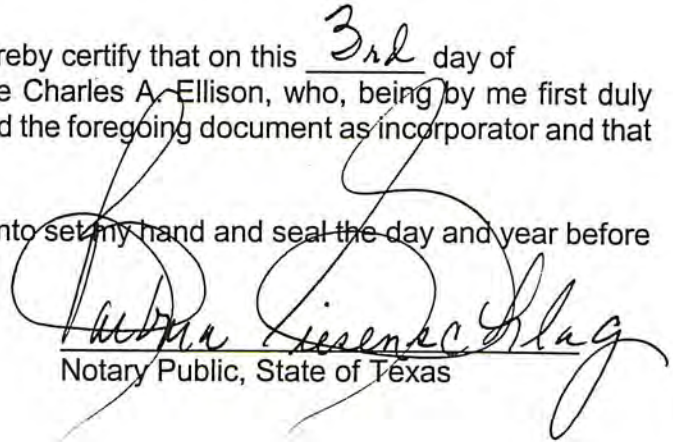 reby certify that on this 3rd day of
e Charles A. Ellison, who, being by me first duly
d the foregoing document as incorporator and that
nto set my hand and seal the day and year before
Notary Public, State of Texas